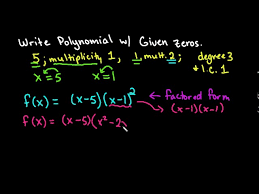 Write Polynomial w/ Given Zeros.
5, multiplicity 1, 1, mult. 2; degree 3
x = 5 x = 1 * l.c. 1
f(x) = (x-5)(x-1)² ← factored form
(x-1)(x-1)
f(x) = (x-5)(x²-2